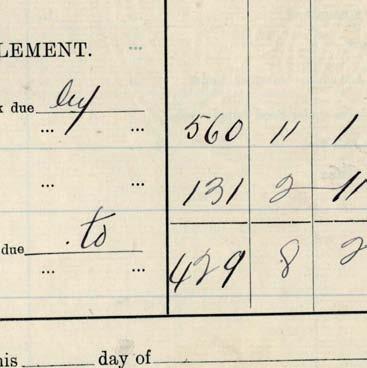 LEMENT.
due by
... ... 560 11 1
... ... 131 2 11
due to
... ... 429 8 2
his day of